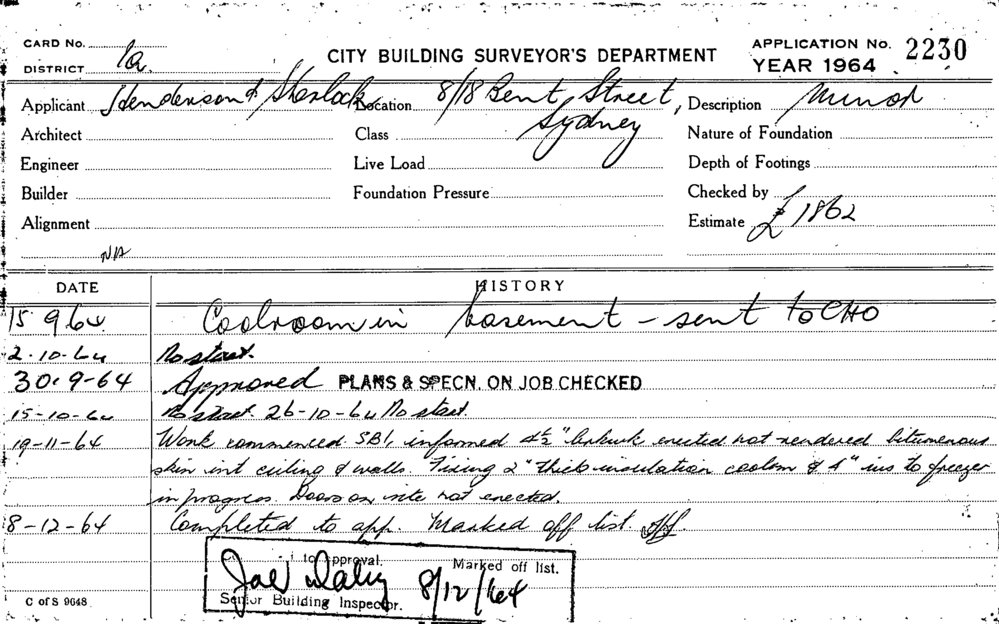 CARD No. 1a. CITY BUILDING SURVEYOR'S DEPARTMENT APPLICATION No. 2230
DISTRICT YEAR 1964
Applicant Henderson & Sherlock Location 8/18 Bent Street, Sydney Description Minor
Architect Class Nature of Foundation
Engineer Live Load Depth of Footings
Builder Foundation Pressure Checked by
Alignment Estimate £ 1862
N/A
DATE HISTORY
15 9 64 Coolroom in basement – sent to CHO
2-10-64 No start.
30.9-64 Approved PLANS & SPECN. ON JOB CHECKED
15-10-64 No start. 26-10-64 No start.
19-11-64 Work commenced SBI, informed 4½" erected not rendered bitumenous
skin int ceiling & walls. Fixing 2" thick insulation & 4" ins to freezer
in progress. Doors on site not erected.
8-12-64 Completed to app. Marked off list.
to approval. Marked off list.
Joe Daly 8/12/64
Senior Building Inspector.
C of S 9648